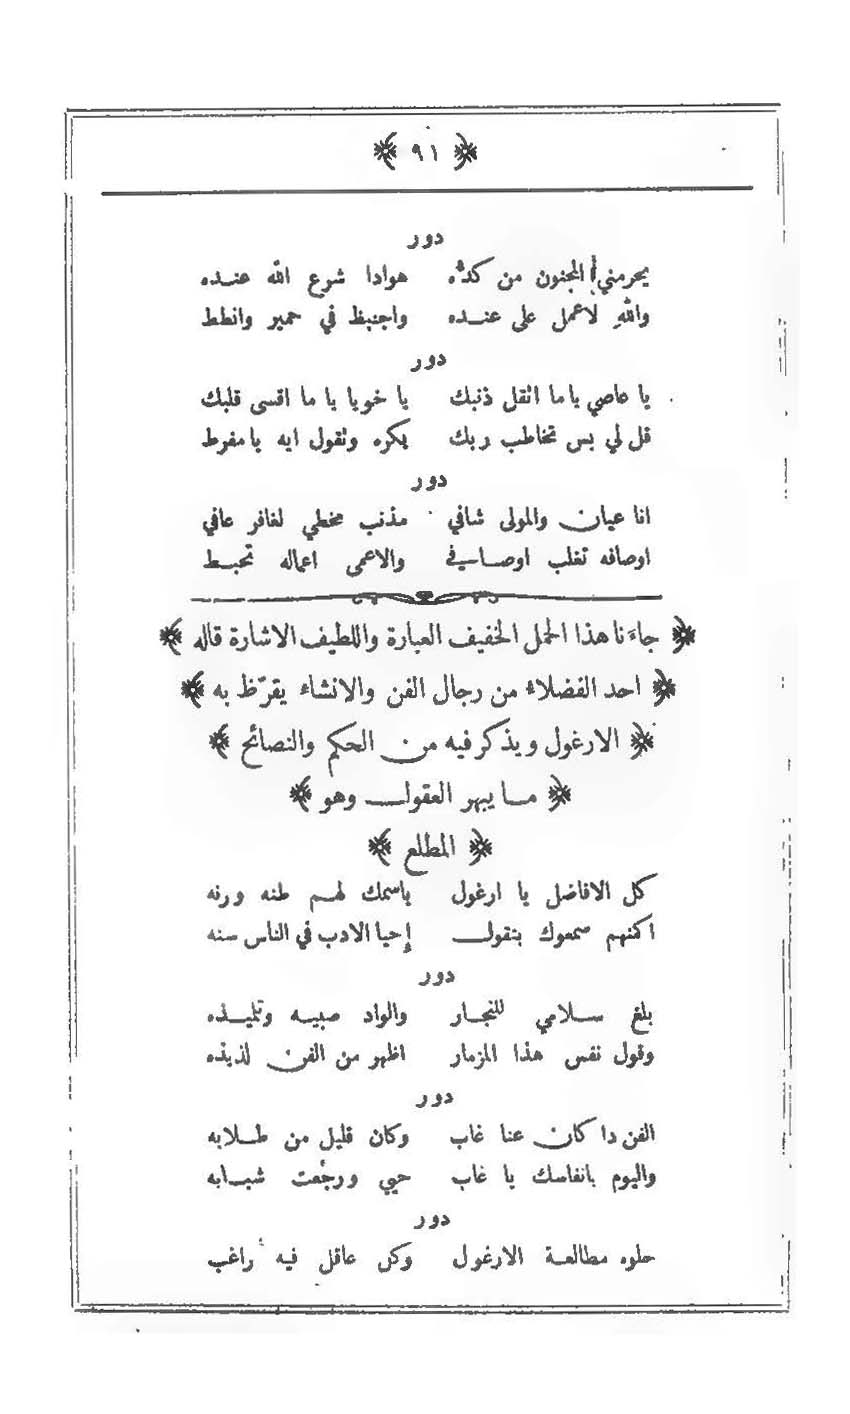 ﴿ ٩١ ﴾
دور
يحرمني المجنون من كده هوادا شرع الله عنـده
والله لاعمل على عنـده واجنبظ في حمير وانطط
دور
يا عاصي ياما اثقل ذنبك يا خويا يا ما اقسى قلبك
قل لي بس تخاطب ربك بكره وتقول ايه يامفرط
دور
انا عيان والمولى شافي مذنب مخطي لغافر عافي
اوصافه تغلب اوصافي والاعمى اعماله تحبط
﴿ جاءنا هذا الحمل الخفيف العبارة واللطيف الاشارة قاله ﴾
﴿ احد الفضلاء من رجال الفن والانشاء يقرّظ به ﴾
﴿ الارغول ويذكر فيه من الحكم والنصائح ﴾
﴿ ما يبهر العقول وهو ﴾
﴿ المطلع ﴾
كل الافاضل يا ارغول باسمك لهم طنه ورنه
اكنهم سمعوك بتقول إحيا الادب في الناس سنه
دور
بلغ سلامي للنجار والواد صبيه وتلميذه
وقول نفس هذا المزمار اظهر من الفن لذيذه
دور
الفن دا كان عنا غاب وكان قليل من طلابه
واليوم بانفاسك يا غاب حيي ورجعت شبابه
دور
حلوه مطالعة الارغول وكل عاقل فيه راغب